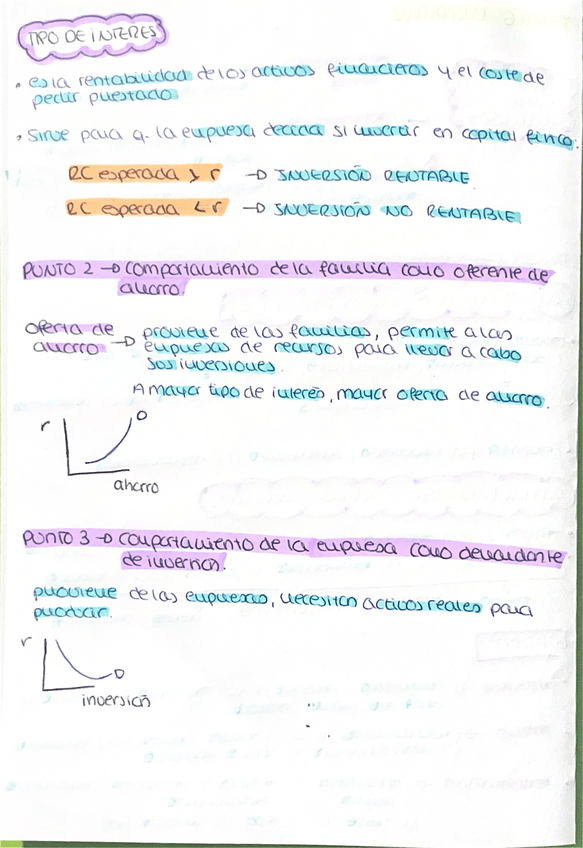 TIPO DE INTERES
• es la rentabilidad de los activos financieros y el coste de
pedir prestado.
• Sirve para q. la empresa decida si invertir en capital finco.
RC esperada > r → INVERSIÓN RENTABLE
RC esperada < r → INVERSIÓN NO RENTABLE
PUNTO 2 → comportamiento de la familia como oferente de
ahorro.
oferta de ahorro → proviene de las familias, permite a las
empresas de recursos para llevar a cabo
sus inversiones.
A mayor tipo de interés, mayor oferta de ahorro.
r
O
ahorro
PUNTO 3 → comportamiento de la empresa como demandante
de inversión.
proviene de las empresas, necesitan activos reales para
producir.
r
D
inversión